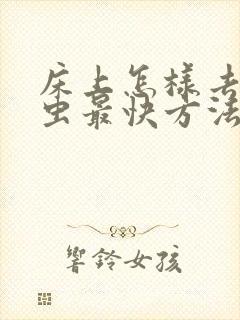 床上怎样去
虫最快方法
響鈴女孩